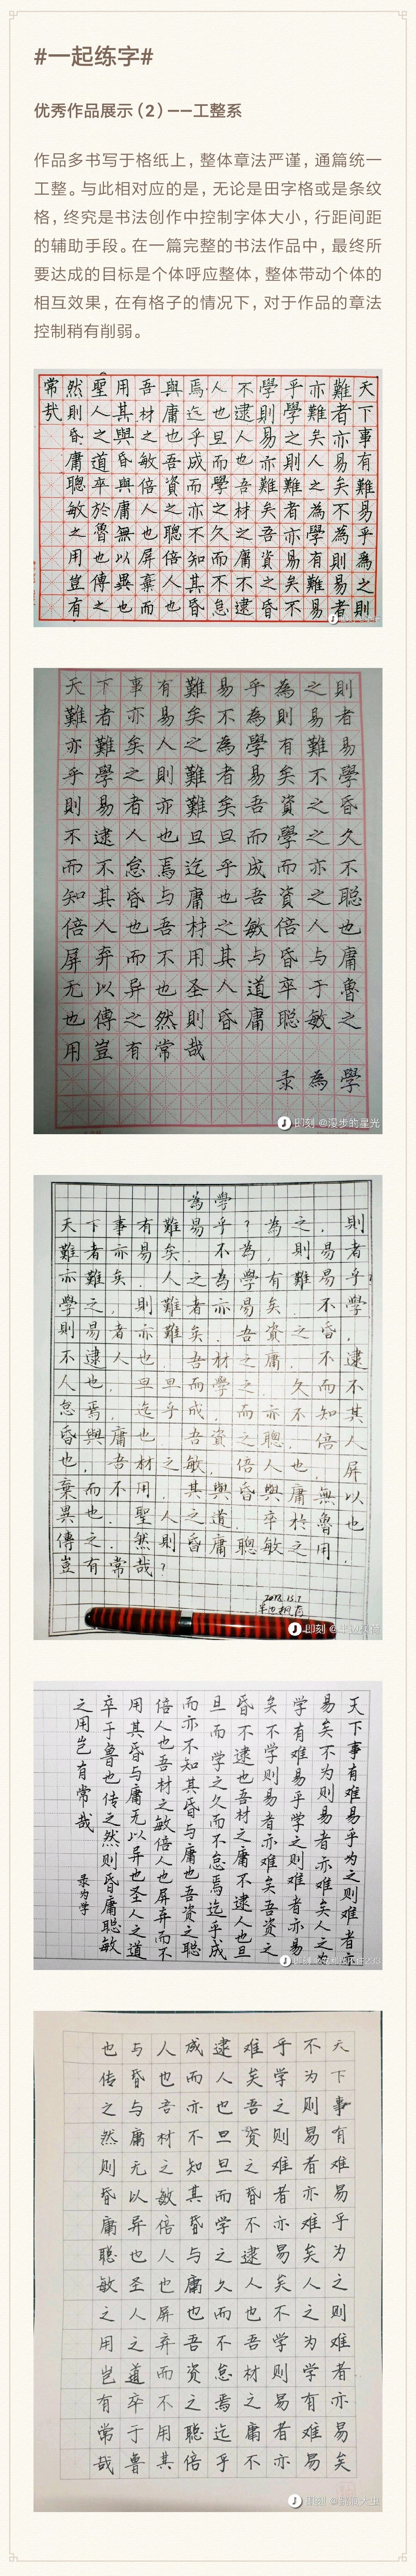 #一起练字#
优秀作品展示（2）——工整系
作品多书写于格纸上，整体章法严谨，通篇统一
工整。与此相对应的是，无论是田字格或是条纹
格，终究是书法创作中控制字体大小，行距间距
的辅助手段。在一篇完整的书法作品中，最终所
要达成的目标是个体呼应整体，整体带动个体的
相互效果，在有格子的情况下，对于作品的章法
控制稍有削弱。
天下事有難易乎為之則
難者亦易矣不為則易者
亦難矣人之為學有難易
乎學之則難者亦易矣不
學則易亦難矣吾資之昏
不逮人也吾材之庸不逮
人也旦而學之久而不怠
焉迄乎成而亦不知其昏
與庸也吾資之聰倍人也
吾材之敏倍人也屏棄而
用其與昏與庸無以異也
聖人之道卒於魯也傳之
然則昏庸聰敏之用豈有
常哉
天下事有難易乎為之則
難者亦易矣不為則易者
亦難矣人之為學有難易
乎學之則難者易矣不學
則易者亦難矣吾資之昏
不逮人也旦旦而學之久
而不怠焉迄乎成而亦不
知其昏与庸也吾資之聪
倍人也吾材之敏倍人也
屏弃而不用其与昏与庸
无以异也圣人道卒于魯
也傳之然則昏庸聪敏之
用豈有常哉
录為學
即刻 @漫步的星光
為學
天下事有難易乎？為之，則
難者亦易矣．不為，則易者
亦難矣．人之為學有難易乎？
學之，則難者亦易矣．不學，
則易者亦難矣．吾資之昏，
不逮人也，吾材之庸，不逮
人也，旦旦而學之，久而不
怠焉，迄乎成，而亦不知其
昏與庸也．吾資之聰，倍人
也，吾材之敏，倍人也，屏
棄而不用，其與昏與庸無以
異也．聖人之道，卒於魯也，
傳之．然則昏庸聰敏之用，
豈有常哉？
即刻
天下事有难易乎为之则难者亦
易矣不为则易者亦难矣人之为
学有难易乎学之则难者亦易
矣不学则易者亦难矣吾资之
昏不逮也吾材之庸不逮人也旦
旦而学之久而不怠焉迄乎成
而亦不知其昏与庸也吾资之聪
倍人也吾材之敏倍人也屏弃而不
用其昏与庸无以异也圣人之道
卒于鲁也传之然则昏庸聪敏
之用岂有常哉
录为学
即刻
天下事有难易乎为之则难者亦易矣
不为则易者亦难矣人之为学有难易
乎学之则难者亦易矣不学则易者亦
难矣吾资之昏不逮人也吾材之庸不
逮人也旦旦而学之久而不怠焉迄乎
成而亦不知其昏与庸也吾资之聪倍
人也吾材之敏倍人也屏弃而不用其
与昏与庸无以异也圣人之道卒于鲁
也传之然则昏庸聪敏之用岂有常哉
即刻